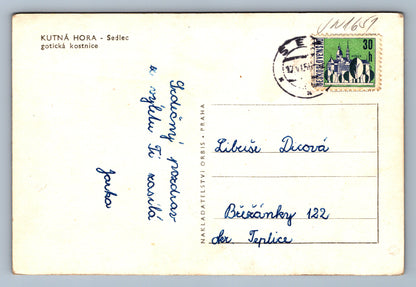 KUTNÁ HORA - Sedlec
gotická kostnice
JN1651
30
h
ČESKOSLOVENSKO
Srdečný pozdrav
z výletu Ti zasílá
Jarka
NAKLADATELSTVÍ ORBIS · PRAHA
Libuše Dicová
Běžánky 122
okr. Teplice